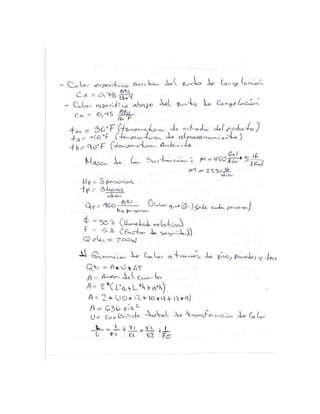 - Calor especifico arriba del punto de Congelación
CA = 0,78 BTU/lb°F
- Calor especifico abajo del punto de Congelación
Ca = 0,45 BTU/lb°F
tm = 30°F (temperatura de entrada del producto)
tA = -10°F (temperatura de almacenamiento)
th = 90°F (temperatura Ambiente
Masa de la Sustancia: M = 450 Gal/dia * 5 lb/1Gal
M = 2250 lb/dia
Np = 3 personas
tp = 3 horas/dia
Qp = 950 BTU/h x persona (Calor que cede cada persona)
φ = 50% (Humedad relativa)
F = 5% (factor de seguridad)
Qelec = 200W
1) Ganancia de Calor a través de piso, paredes y
Qt = A * U * ΔT
A = Area del Cuarto
A = 2 * (L*a + L*h + a*h)
A = 2 * (10*12 + 10*9 + 12*9)
A = 636 pie²
U = Coeficiente total de transferencia de Calor
1/U = 1/Fi + X1/K1 + X2/K2 + 1/FO